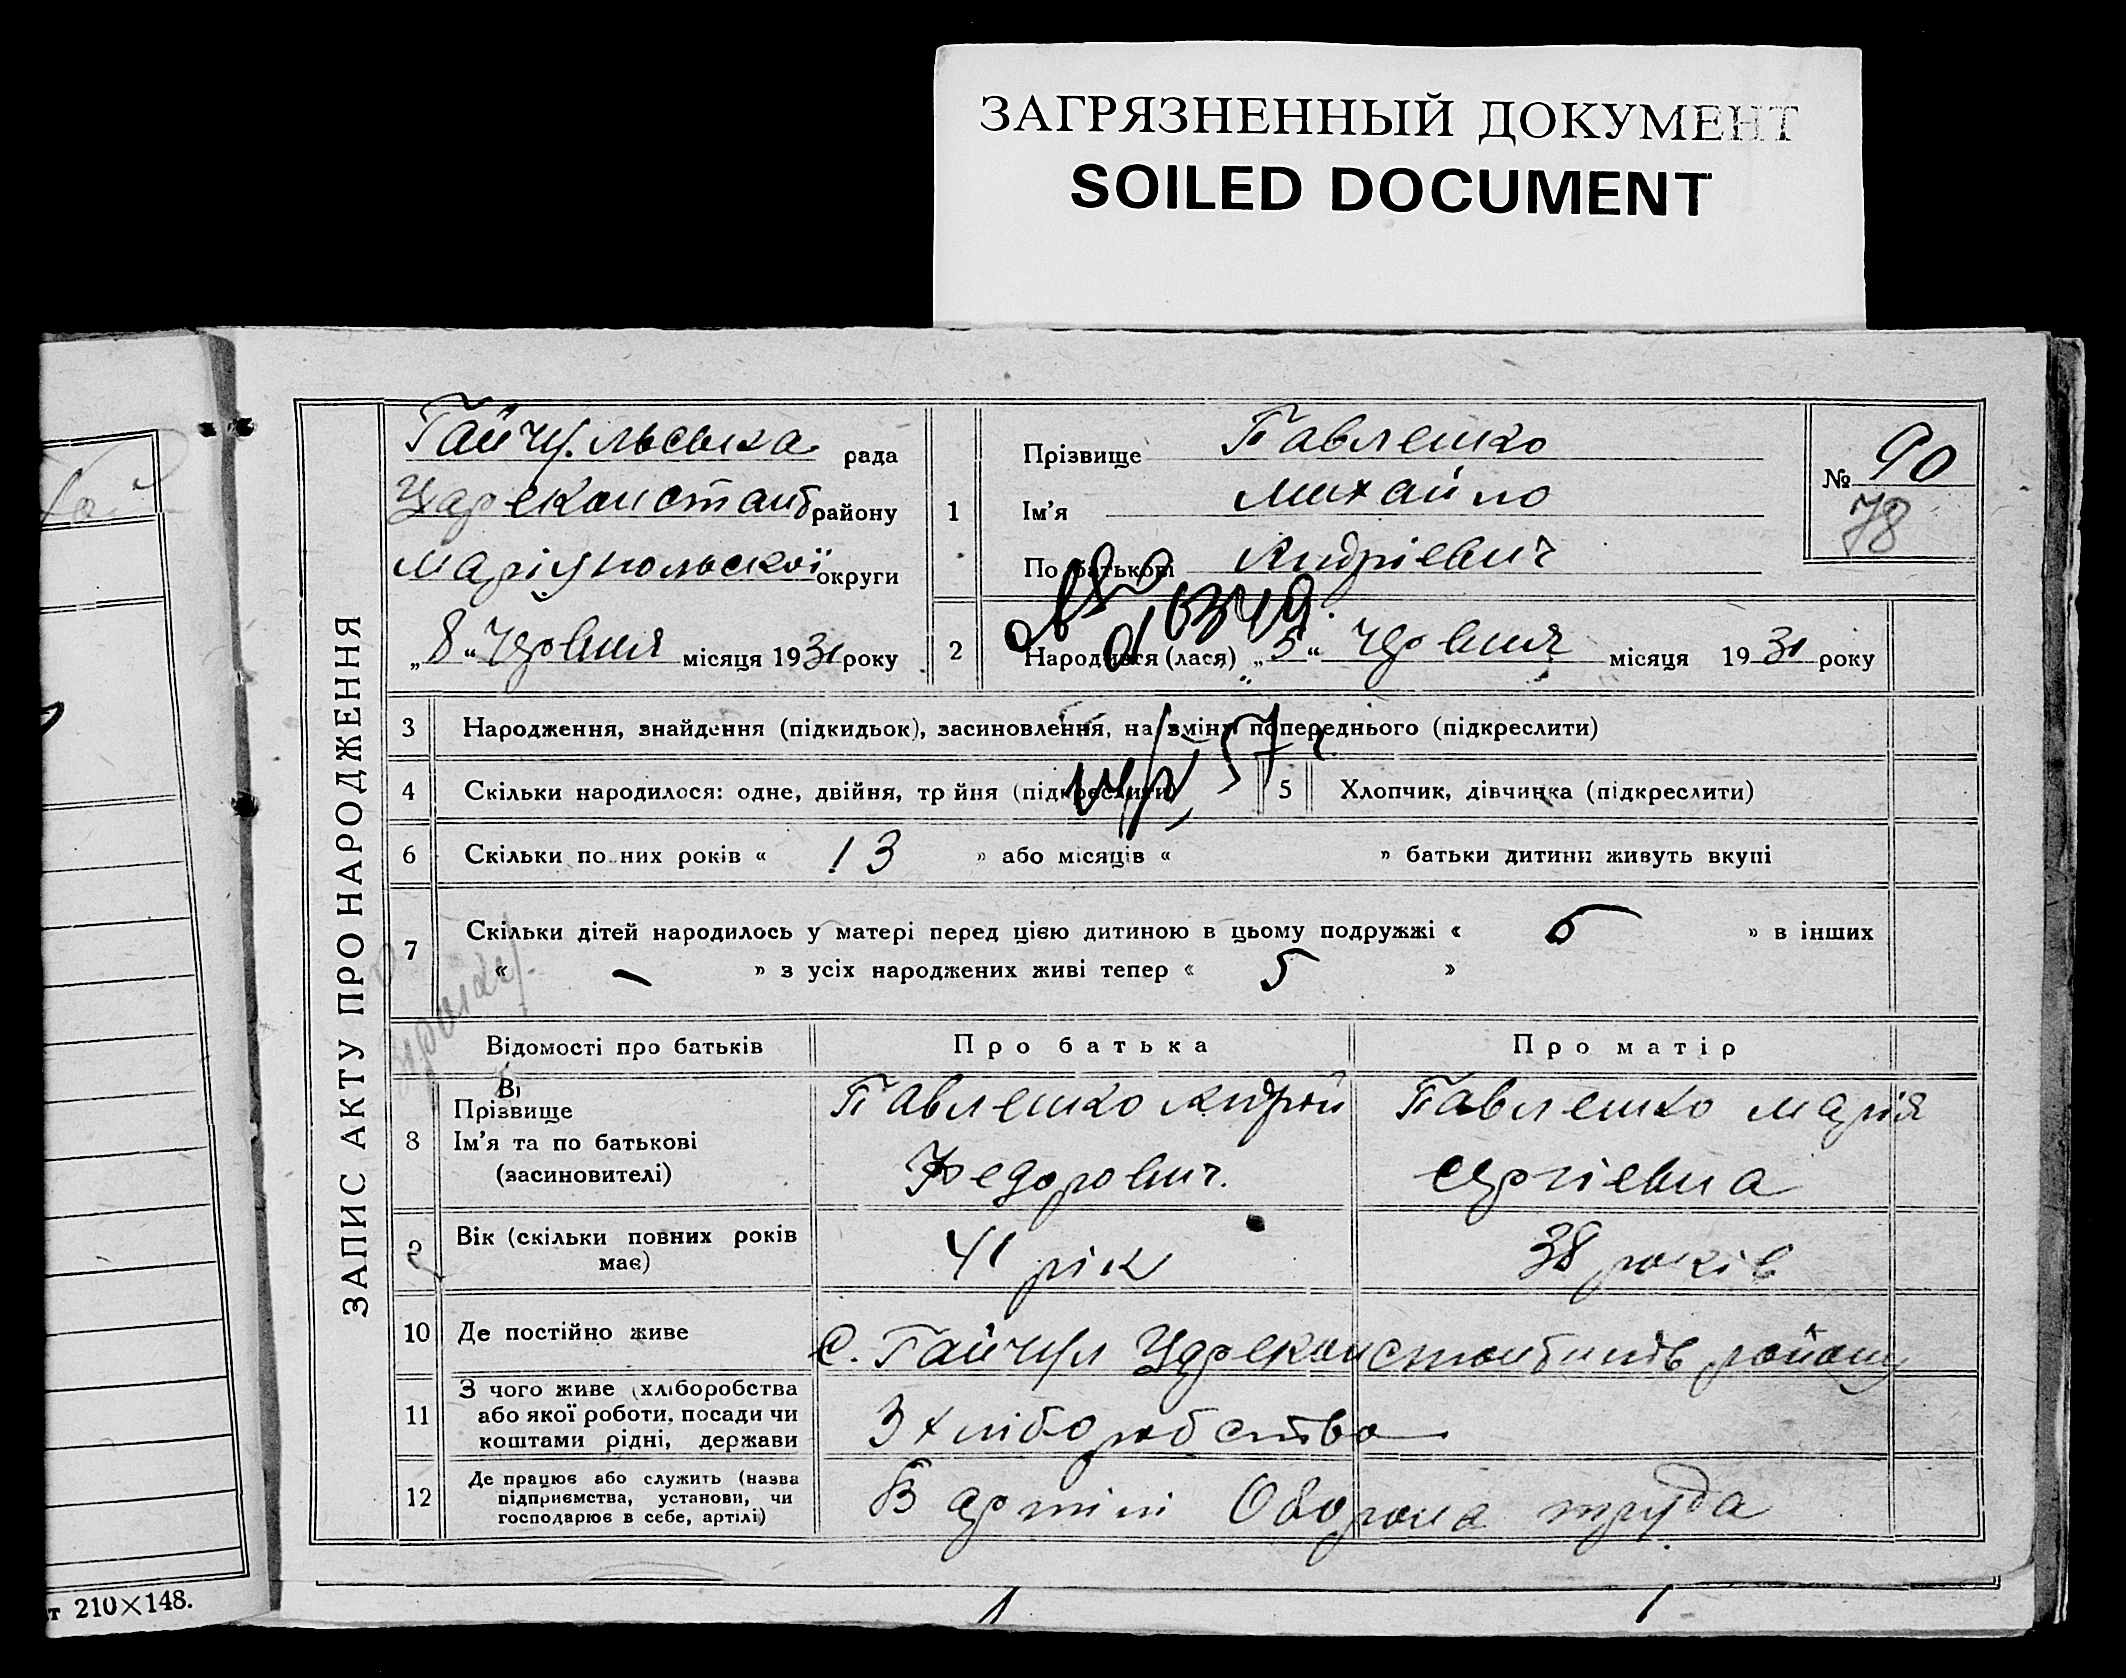 ЗАГРЯЗНЕННЫЙ ДОКУМЕНТ
SOILED DOCUMENT
ЗАПИС АКТУ ПРО НАРОДЖЕННЯ
Гайчульська рада
Царекостантб району
Маріупольскої округи
„8“ Червня місяця 1931 року
1
Прізвище Павлешко
Ім'я Михайло
По батькові Андрієвич
№ 90
78
2
Народився (лася) „5“ Червня місяця 1931 року
3 Народження, знайдення (підкидьок), засиновлення, на зміну попереднього (підкреслити)
4 Скільки народилося: одне, двійня, тр йня (підкреслити)
5 Хлопчик, дівчинка (підкреслити)
6 Скільки по них років « 13 » або місяців « » батьки дитини живуть вкупі
7 Скільки дітей народилось у матері перед цією дитиною в цьому подружжі « 6 » в інших
« – » з усіх народжених живі тепер « 5 »
Відомості про батьків
Про батька
Про матір
8
Прізвище
Ім'я та по батькові
(засиновителі)
Павлешко Андрій
Федорович.
Павлешко Марія
Сергіевна
9 Вік (скільки повних років
має)
41 рік
38 років
10 Де постійно живе
с. Гайчул Царекон району
11
З чого живе (хліборобства
або якої роботи, посади чи
коштами рідні, держави
З хліборобства
12
Де працює або служить (назва
підприємства, установи, чи
господарює в себе, артілі)
В артілі Оборона труда
т 210×148.